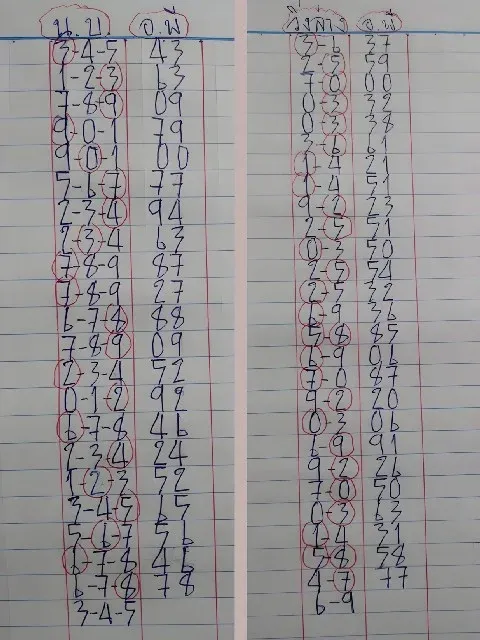 น.บ. อ.พี
3-4-5 43
1-2-3 63
7-8-9 09
9-0-1 79
9-0-1 00
5-6-7 77
2-3-4 94
2-3-4 63
7-8-9 87
7-8-9 27
6-7-8 88
7-8-9 09
2-3-4 52
0-1-2 92
6-7-8 46
2-3-4 24
1-2-3 52
3-4-5 65
5-6-7 56
6-7-8 46
6-7-8 78
3-4-5
วิ่งล่าง อ.พี
3-6 37
2-5 59
7-0 00
0-3 32
0-3 38
3-6 61
1-4 21
1-4 51
9-2 23
2-5 51
0-3 50
2-5 54
2-5 32
6-9 36
5-8 85
6-9 06
7-0 87
9-2 20
0-3 06
6-9 91
9-2 26
7-0 50
0-3 63
1-4 31
5-8 58
4-7 77
6-9